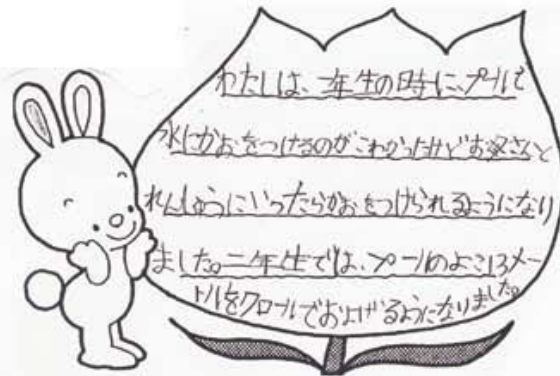 わたしは、一年生の時に、プールで
水にかおをつけるのがこわかったけどお父さんと
れんしゅうにいったらかおをつけられるようになり
ました。二年生では、プールのよこ13メー
トルをクロールでおよげるようになりました。